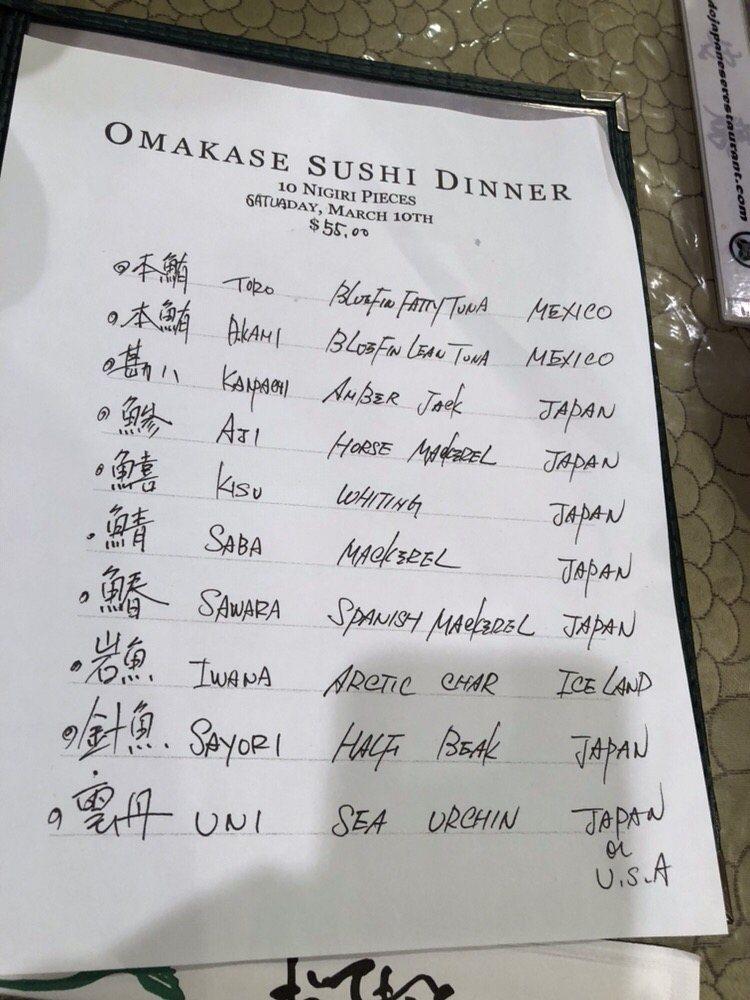 OMAKASE SUSHI DINNER
10 NIGIRI PIECES
SATUADAY, MARCH 10TH
$55.00
本鮪 TORO BLUEFIN FATTY TUNA MEXICO
本鮪 AKAMI BLUEFIN LEAN TUNA MEXICO
勘八 KANPACHI AMBER JACK JAPAN
鯵 AJI HORSE MACKEREL JAPAN
鱚 KISU WHITING JAPAN
鯖 SABA MACKEREL JAPAN
鰆 SAWARA SPANISH MACKEREL JAPAN
岩魚 IWANA ARCTIC CHAR ICELAND
針魚 SAYORI HALF BEAK JAPAN
雲丹 UNI SEA URCHIN JAPAN
or
U.S.A
dojapaneserestaurant.com